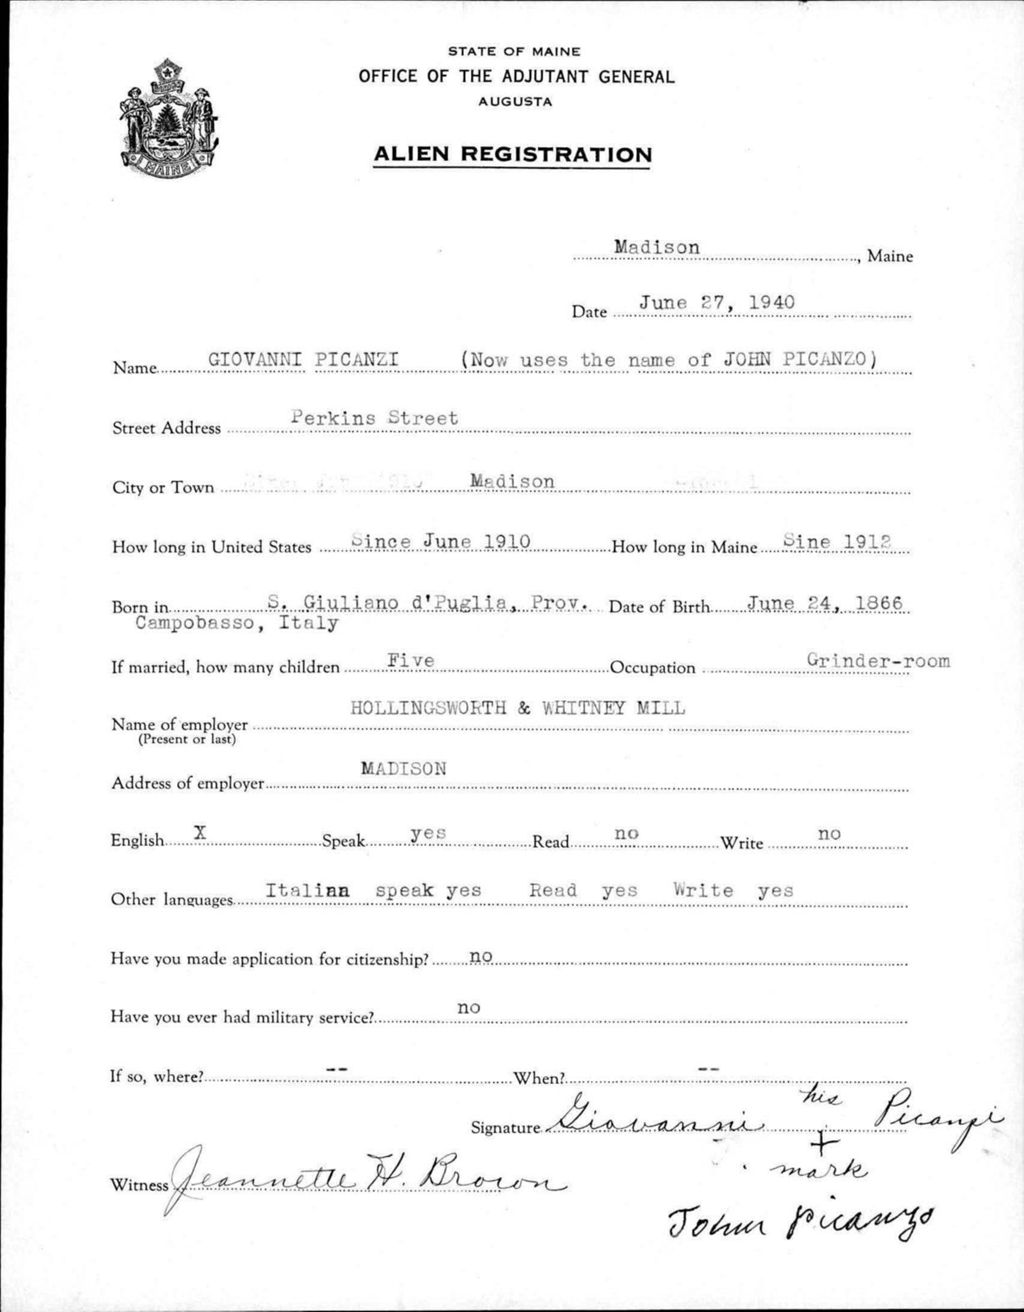 STATE OF MAINE
OFFICE OF THE ADJUTANT GENERAL
AUGUSTA
ALIEN REGISTRATION
MAINE
Madison, Maine
Date June 27, 1940
Name GIOVANNI PICANZI (Now uses the name of JOHN PICANZO)
Street Address Perkins Street
City or Town Madison
How long in United States Since June 1910 How long in Maine Sine 1912
Born in S. Giuliano d'Puglia, Prov. Date of Birth June 24, 1866
Campobasso, Italy
If married, how many children Five Occupation Grinder-room
HOLLINGSWORTH & WHITNEY MILL
Name of employer
(Present or last)
MADISON
Address of employer
English X Speak yes Read no Write no
Other languages Italian speak yes Read yes Write yes
Have you made application for citizenship? no
Have you ever had military service? no
If so, where? -- When? --
Signature Giovanni his Picanzi
+
Witness Jeannette H. Brown mark
John Picanzo